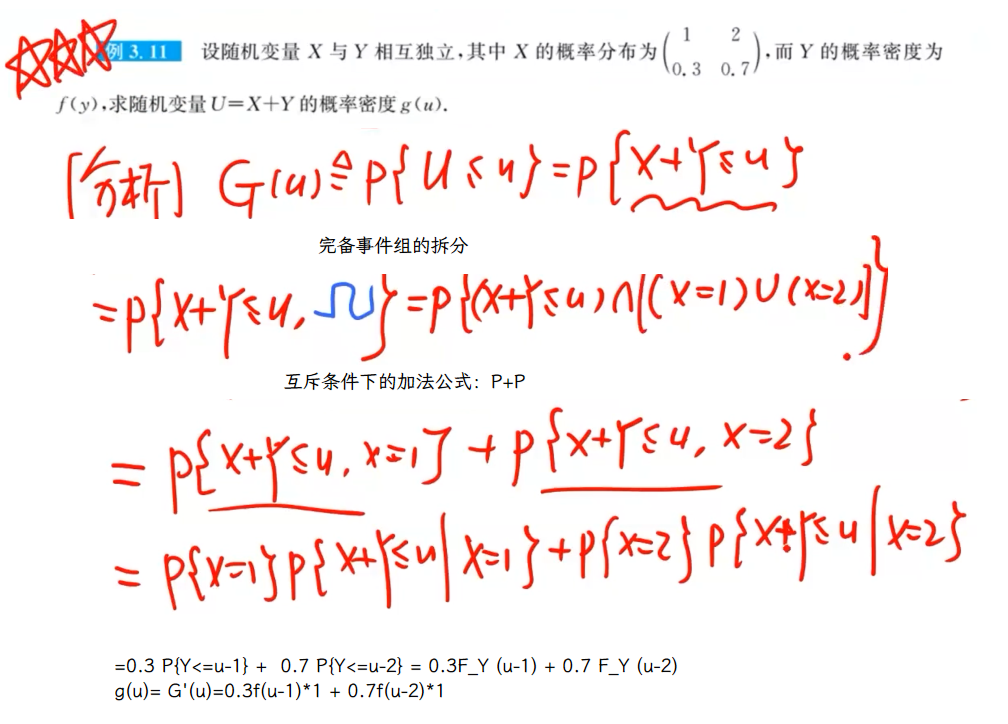 例 3.11 设随机变量 X 与 Y 相互独立,其中 X 的概率分布为 ( 1 2 0.3 0.7 ),而 Y 的概率密度为
f(y),求随机变量U=X+Y 的概率密度 g(u).
[分析] G(u)≜P{U≤u}=P{X+Y≤u}
完备事件组的拆分
=P{X+Y≤u, Ω}=P{(X+Y≤u)∩[(X=1)∪(X=2)]}
互斥条件下的加法公式：P+P
=P{X+Y≤u, X=1}+P{X+Y≤u, X=2}
=P{X=1}P{X+Y≤u|X=1}+P{X=2}P{X+Y≤u|X=2}
=0.3 P{Y<=u-1} + 0.7 P{Y<=u-2} = 0.3F_Y (u-1) + 0.7 F_Y (u-2)
g(u)= G'(u)=0.3f(u-1)*1 + 0.7f(u-2)*1